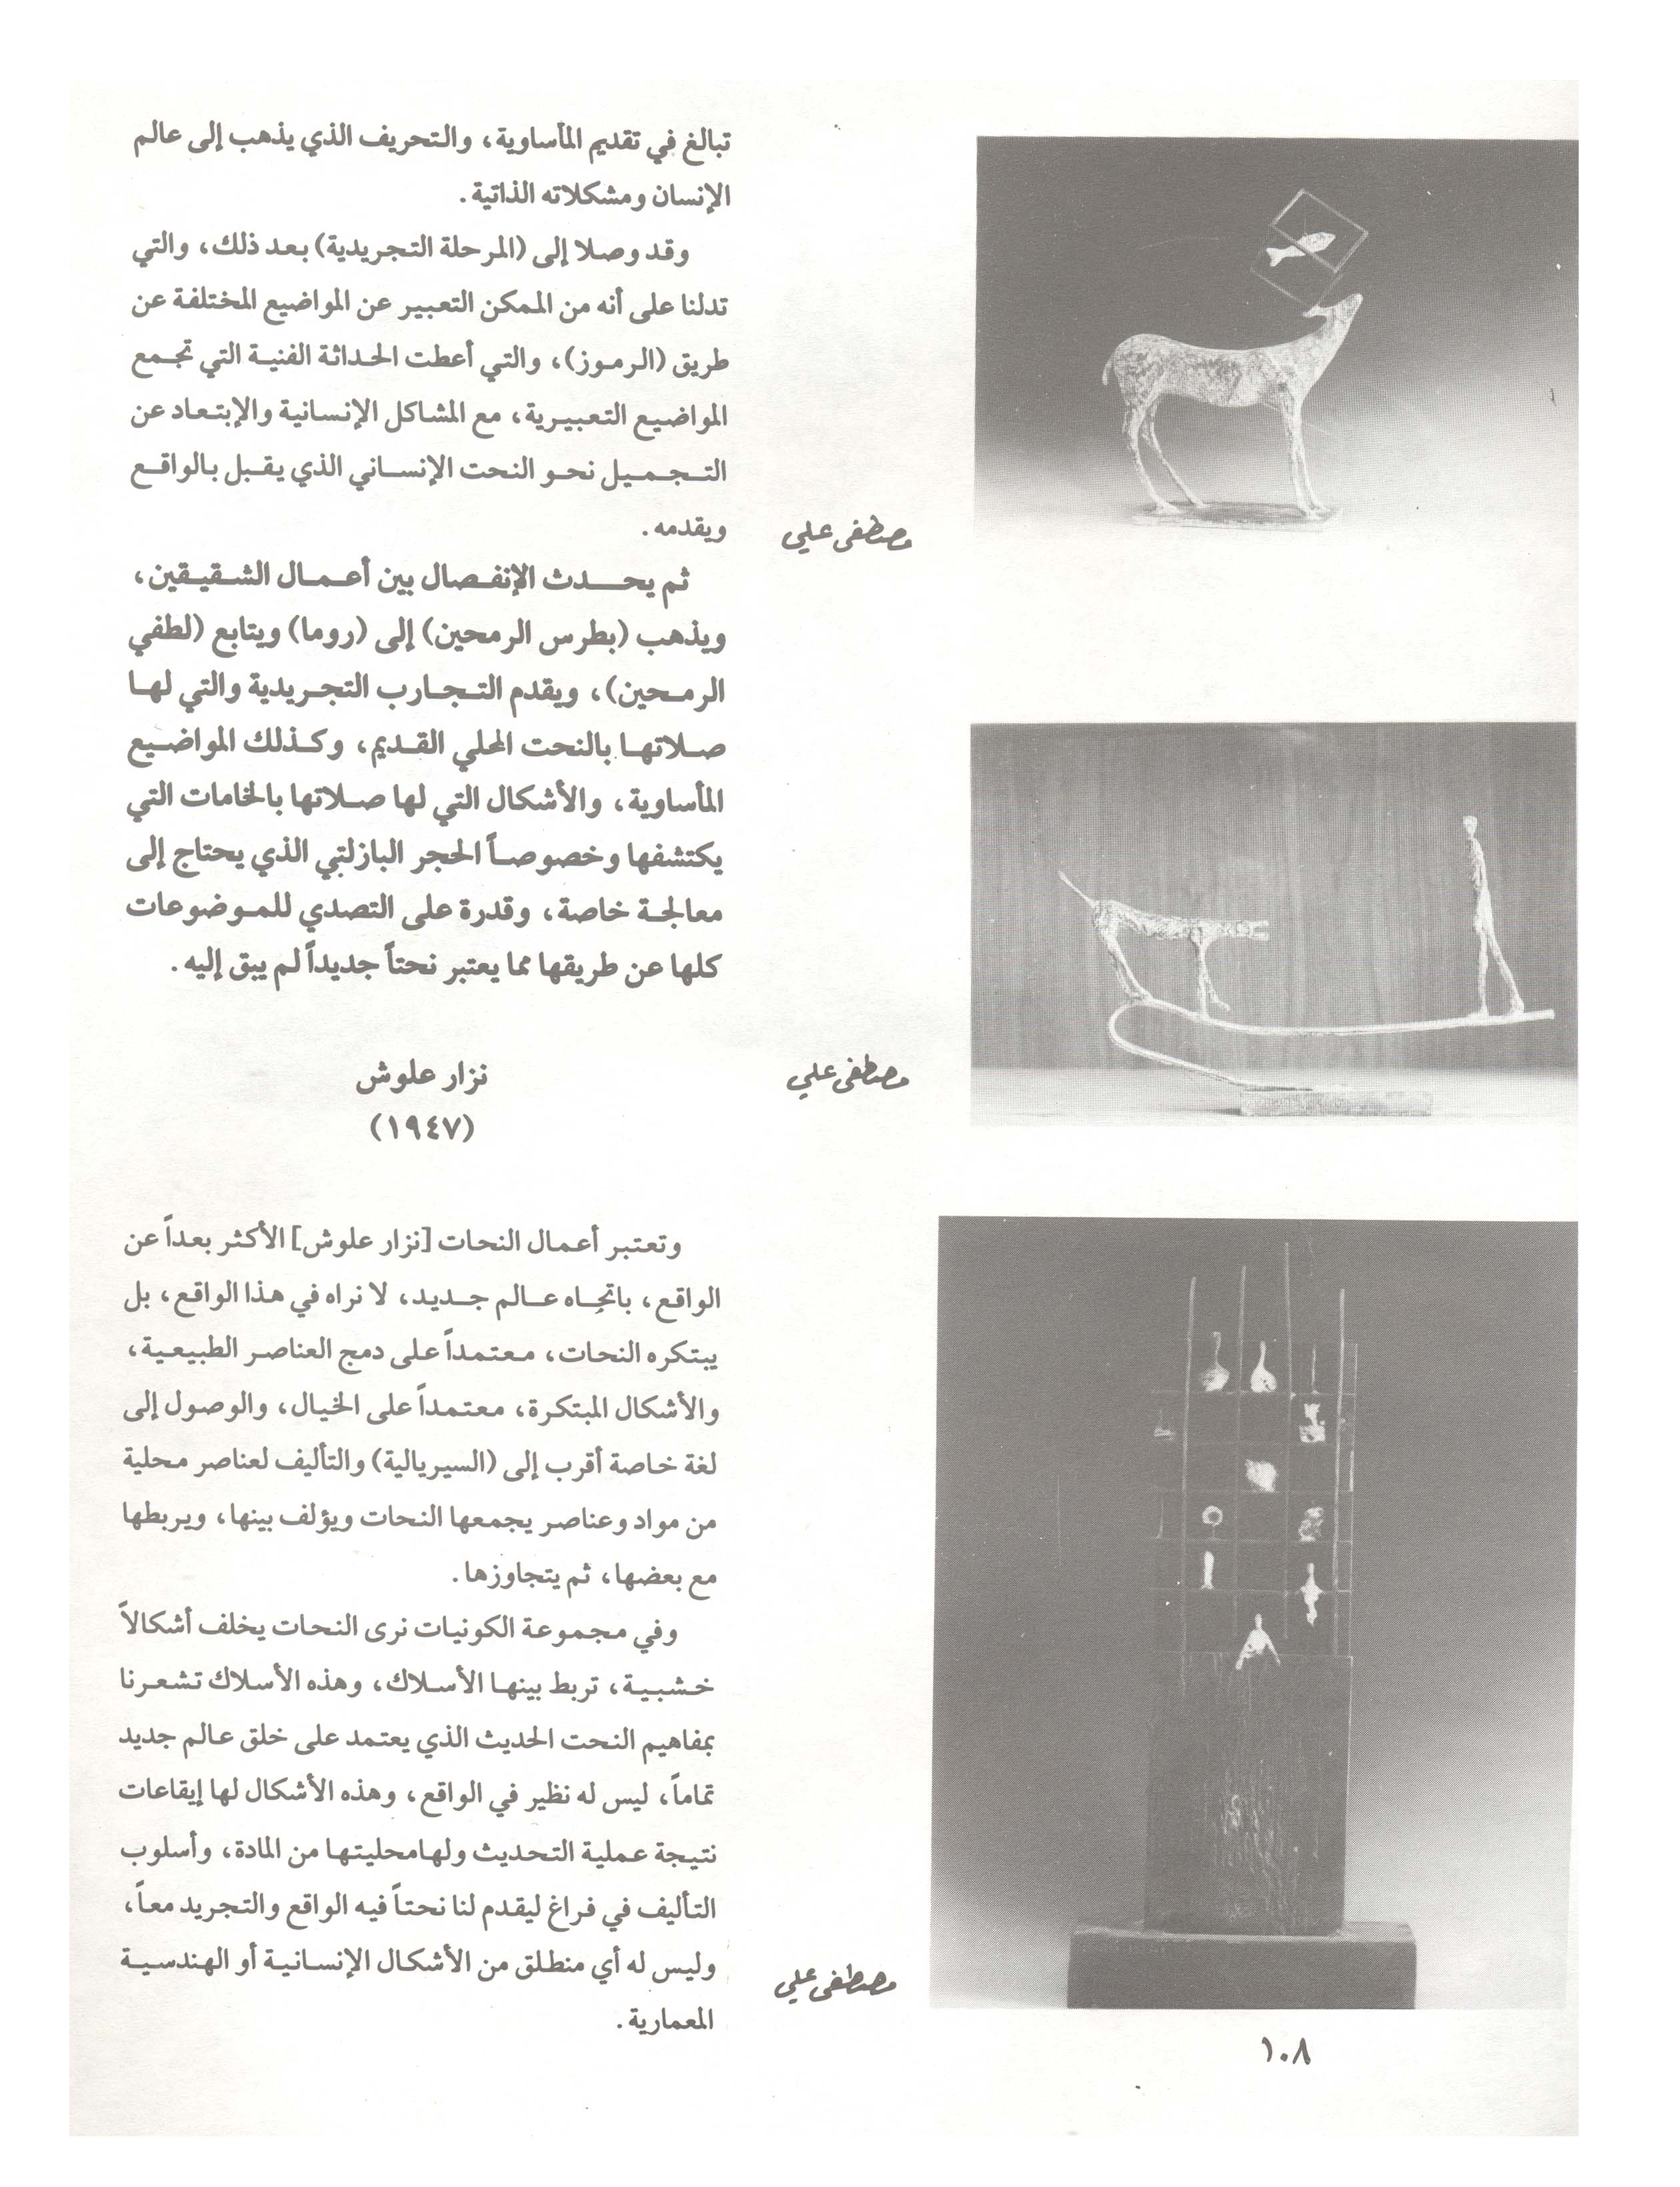 تبالغ في تقديم المأساوية، والتحريف الذي يذهب إلى عالم
الإنسان ومشكلاته الذاتية.
وقد وصلا إلى (المرحلة التجريدية) بعد ذلك، والتي
تدلنا على أنه من الممكن التعبير عن المواضيع المختلفة عن
طريق (الرموز)، والتي أعطت الحداثة الفنية التي تجمع
المواضيع التعبيرية، مع المشاكل الإنسانية والإبتعاد عن
التجميل نحو النحت الإنساني الذي يقبل بالواقع
ويقدمه.
ثم يحدث الإنفصال بين أعمال الشقيقين،
ويذهب (بطرس الرمحين) إلى (روما) ويتابع (لطفي
الرمحين)، ويقدم التجارب التجريدية والتي لها
صلاتها بالنحت المحلي القديم، وكذلك المواضيع
المأساوية، والأشكال التي لها صلاتها بالخامات التي
يكتشفها وخصوصاً الحجر البازلتي الذي يحتاج إلى
معالجة خاصة، وقدرة على التصدي للموضوعات
كلها عن طريقها مما يعتبر نحتاً جديداً لم يبق إليه.
نزار علوش
(١٩٤٧)
وتعتبر أعمال النحات [نزار علوش] الأكثر بعداً عن
الواقع، باتجاه عالم جديد، لا نراه في هذا الواقع، بل
يبتكره النحات، معتمداً على دمج العناصر الطبيعية،
والأشكال المبتكرة، معتمداً على الخيال، والوصول إلى
لغة خاصة أقرب إلى (السيريالية) والتأليف لعناصر محلية
من مواد وعناصر يجمعها النحات ويؤلف بينها، ويربطها
مع بعضها، ثم يتجاوزها.
وفي مجموعة الكونيات نرى النحات يخلف أشكالاً
خشبية، تربط بينها الأسلاك، وهذه الأسلاك تشعرنا
بمفاهيم النحت الحديث الذي يعتمد على خلق عالم جديد
تماماً، ليس له نظير في الواقع، وهذه الأشكال لها إيقاعات
نتيجة عملية التحديث ولهامحليتها من المادة، وأسلوب
التأليف في فراغ ليقدم لنا نحتاً فيه الواقع والتجريد معاً،
وليس له أي منطلق من الأشكال الإنسانية أو الهندسية
المعمارية.
مصطفى علي
مصطفى علي
مصطفى علي
١٠٨